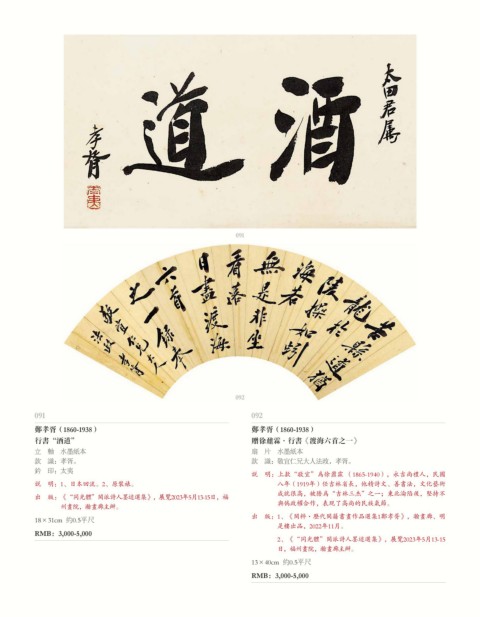 太田君属
酒道
孝胥
091
苦縣道猶
龍於
陵操如蚓
海若
無是非坐
看落
日盡渡海
六首
之一錄奉
敬宜仁兄大人
法政 孝胥
092
091
鄭孝胥（1860-1938）
行書“酒道”
立 軸 水墨紙本
款 識：孝胥。
鈐 印：太夷
說 明：1、日本回流。2、原裝裱。
出 版：《“同光體”閩派詩人墨迹選集》，展覽2023年5月13-15日，福
州畫院，畫廊主辦。
18×31cm 約0.5平尺
RMB: 3,000-5,000
092
鄭孝胥（1860-1938）
贈徐鼐霖·行書《渡海六首之一》
扇 片 水墨紙本
款 識：敬宜仁兄大人法政，孝胥。
說 明：上款“敬宜”爲徐鼐霖（1865-1940），永吉尚禮人，民國
八年（1919年）任吉林省長，他精詩文、善書法，文化藝術
成就很高，被譽爲“吉林三杰”之一；東北淪陷後，堅持不
與僞政權合作，表現了高尚的民族氣節。
出 版：1、《閩籍書畫作品選集1鄭孝胥》，畫廊，
是樓出品，2022年11月。
2、《“同光體”閩派詩人墨迹選集》，展覽2023年5月13-15
日，福州畫院，畫廊主辦。
13×40cm 約0.5平尺
RMB: 3,000-5,000